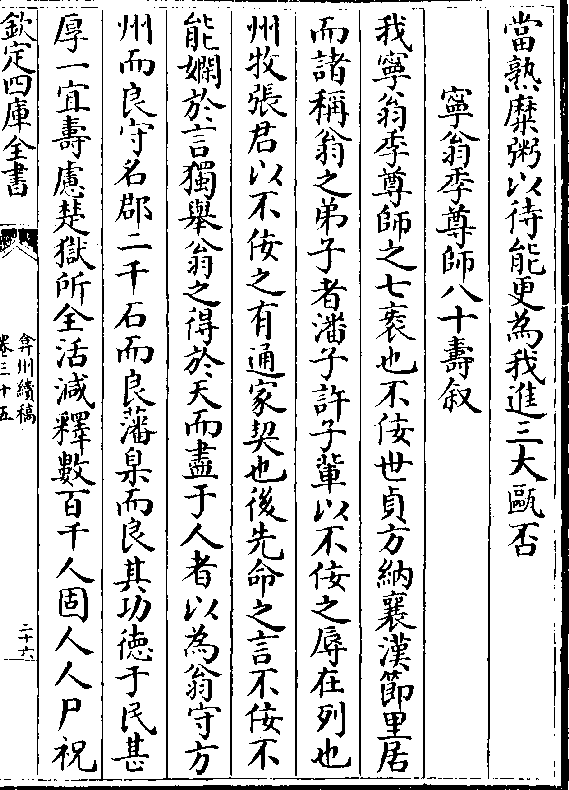 當熟糜粥以待能更為我進三大甌否
寧翁季尊師八十壽叙
我寧翁季尊師之七袠也不佞世貞方納襄漢節里居
而諸稱翁之弟子者潘子許子輩以不佞之辱在列也
州牧張君以不佞之有通家契也後先命之言不佞不
能嫻於言獨舉翁之得於天而盡于人者以為翁守方
州而良守名郡二千石而良藩臬而良其功德于民甚
厚一宜壽慮楚獄所全活減釋數百千人固人人尸祝
欽定四庫全書
弇州續稿
卷三十五
二十六